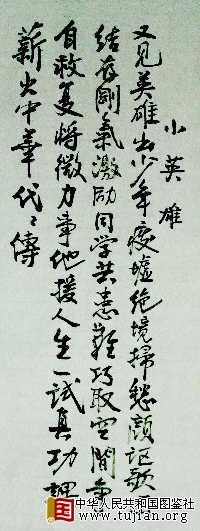 小英雄
又見英雄出少年废墟絕境掃愁顔讴歌
結存剛氣激励同学共患難巧取空間争
自救更将微力事他援人生一試真功課
薪火中華代々傳
中华人民共和国图鉴社
www.tujian.org